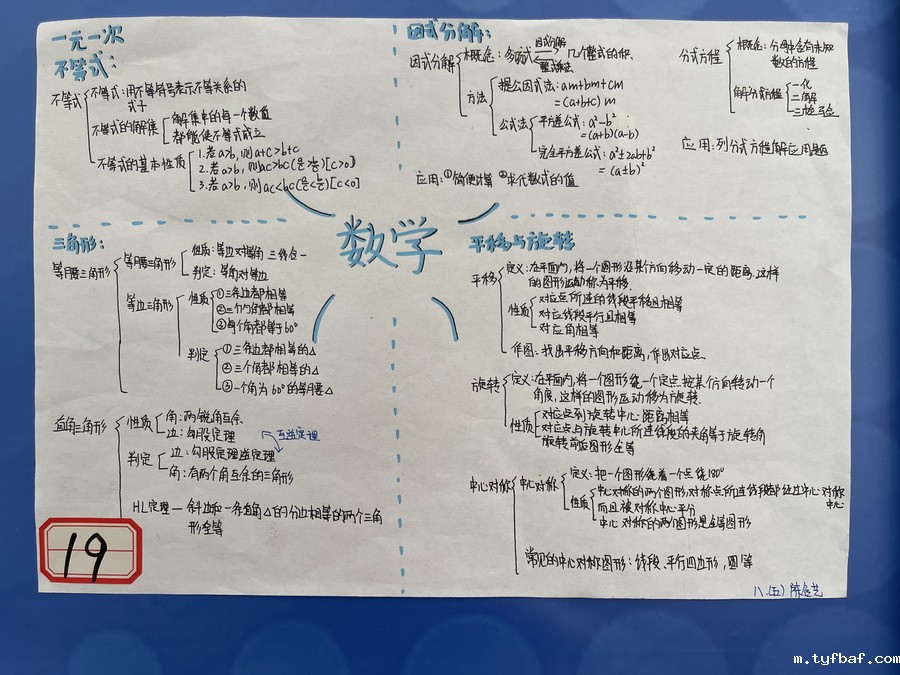 一元一次
不等式：
不等式
不等式：用不等符号表示不等关系的
式子
不等式的解集
解集中的每一个数值
都能使不等式成立
不等式的基本性质
1.若a>b,则a+c>b+c
2.若a>b,则ac>bc(a/c>b/c)[c>0]
3.若a>b,则ac<bc(a/c<b/c)[c<0]
因式分解：
因式分解
概念：多项式 因式分解 整式乘法 几个整式的积.
方法
提公因式法：am+bm+cm
=(a+b+c)m
公式法
平方差公式：a²-b²
=(a+b)(a-b)
完全平方公式：a²±2ab+b²
=(a±b)²
应用：①简便计算 ②求代数式的值
分式方程
概念：分母中含有未知
数的方程
解分式方程
一化
二解
三检
应用：列分式方程解应用题
数学
三角形：
等腰三角形
等腰三角形
性质：等边对等角 三线合一
判定：等角对等边
等边三角形
性质
①三条边都相等
②三个角都相等
③每个角都等于60°
判定
①三条边都相等的△
②三个角都相等的△
③一个角为60°的等腰△
直角三角形
性质
角：两锐角互余
边：勾股定理
互逆定理
判定
边：勾股定理逆定理
角：有两个角互余的三角形
HL定理—斜边和一条直角△的分边相等的两个三角
形全等
平移与旋转
平移
定义：在平面内,将一个图形沿某个方向移动一定的距离,这样
的图形运动称为平移.
性质
对应点所连的线段平行且相等
对应线段平行且相等
对应角相等
作图：找出平移方向和距离,作出对应点.
旋转
定义：在平面内,将一个图形绕一个定点按某个方向转动一个
角度,这样的图形运动称为旋转.
性质
对应点到旋转中心距离相等
对应点与旋转中心所连线段的夹角等于旋转角
旋转前后图形全等
中心对称
中心对称
定义：把一个图形绕着一个点绕180°
性质
中心对称的两个图形,对称点所连线段都经过中心对称
中心
而且被对称中心平分
中心对称的两个图形是全等图形
常见的中心对称图形：线段、平行四边形,圆等
19
八.(五)
m.tyfbaf.com